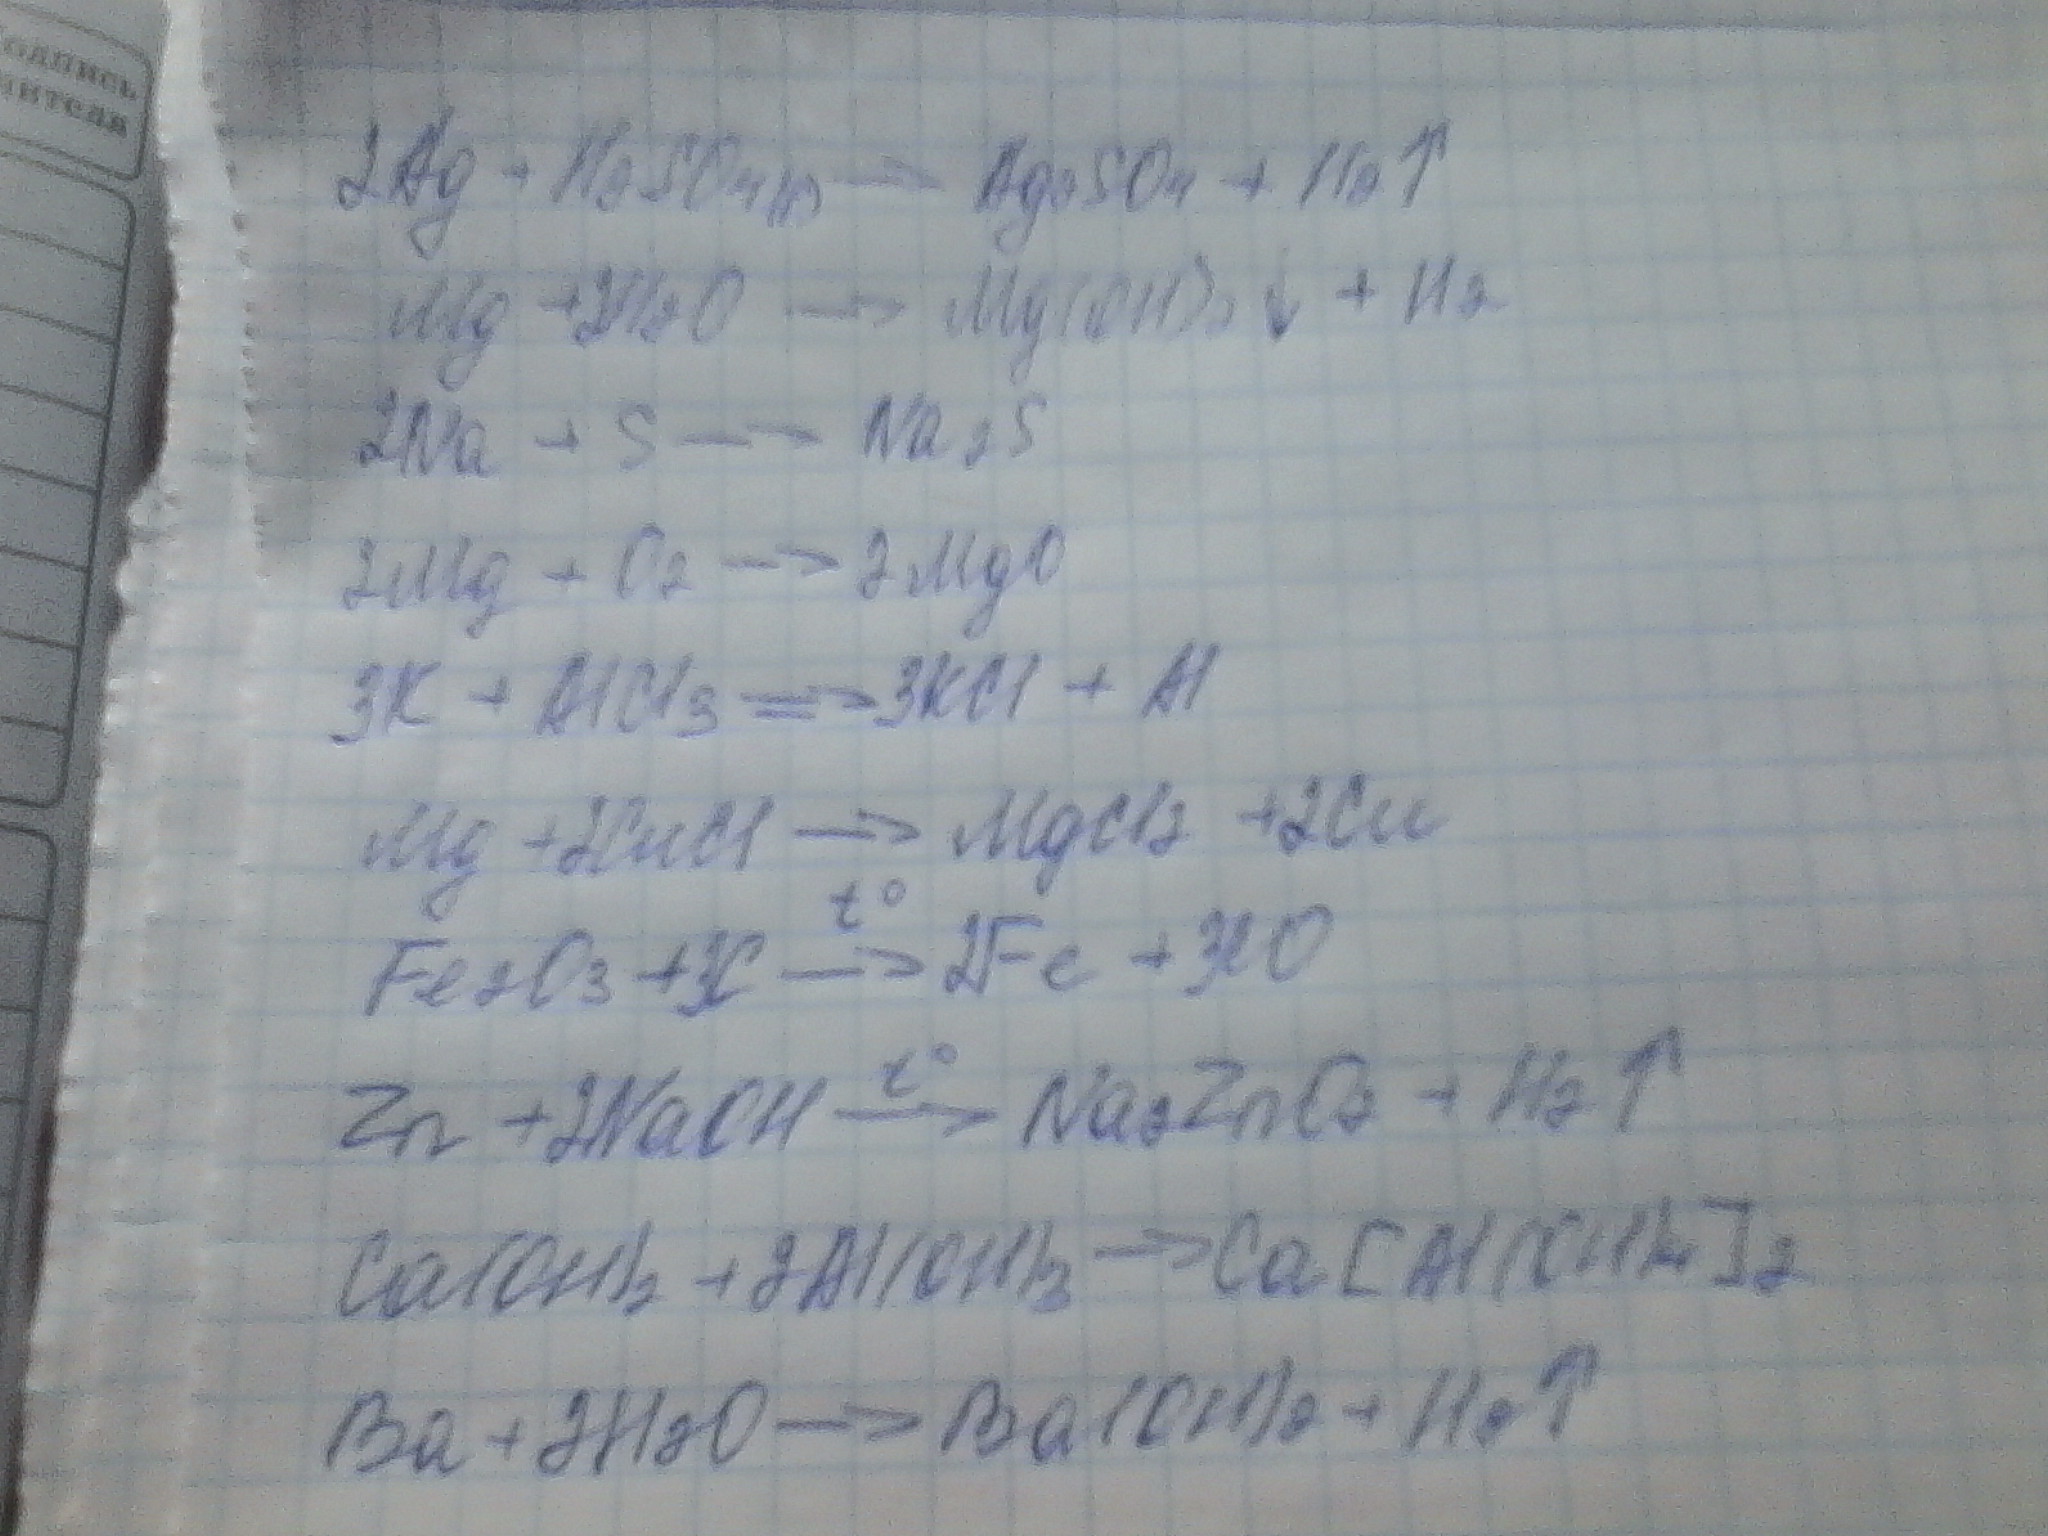 одпись
ителя
2Ag + H2SO4 → Ag2SO4 + H2↑
Mg + 2H2O → Mg(OH)2↓ + H2
2Na + S → Na2S
2Mg + O2 → 2MgO
3K + AlCl3 → 3KCl + Al
Mg + 2CuCl → MgCl2 + 2Cu
t°
Fe2O3 + 3C → 2Fe + 3CO
t°
Zn + 2NaOH → Na2ZnO2 + H2↑
Ca(OH)2 + 2Al(OH)3 → Ca[Al(OH)4]2
Ba + 2H2O → Ba(OH)2 + H2↑